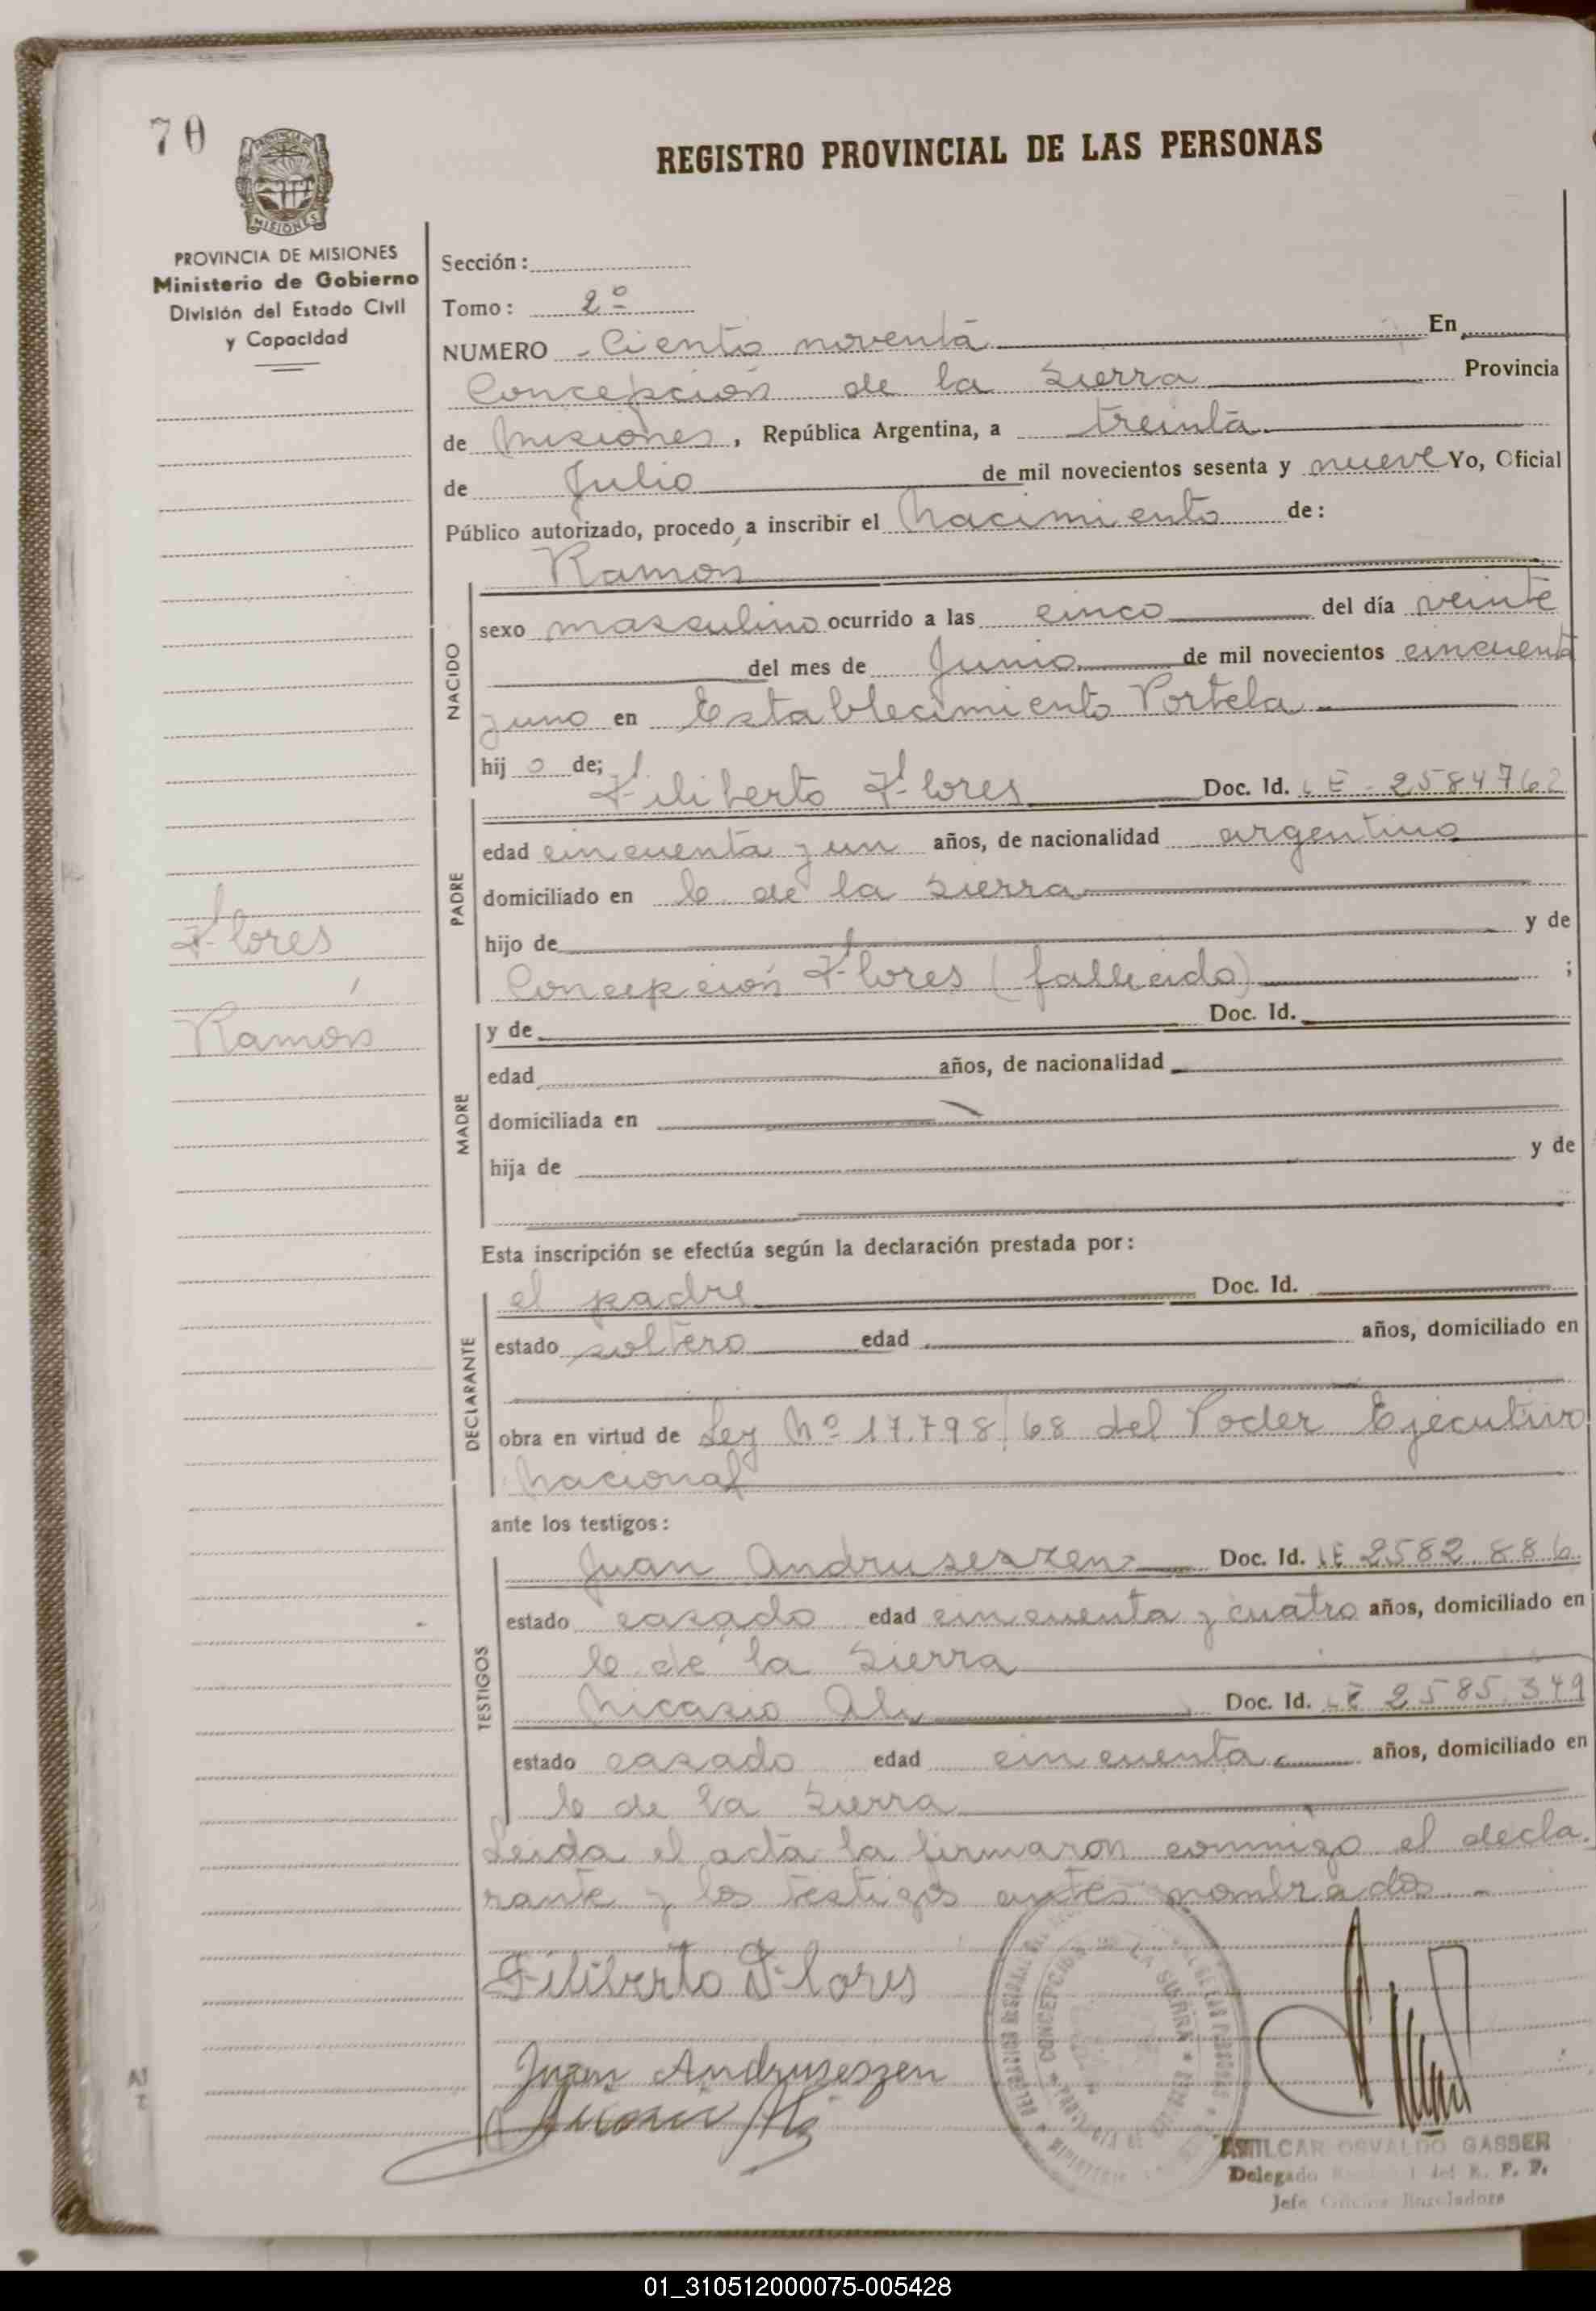 70
REGISTRO PROVINCIAL DE LAS PERSONAS
PROVINCIA DE MISIONES
Ministerio de Gobierno
División del Estado Civil
y Capacidad
Sección:
Tomo: 2º
NUMERO Ciento noventa En
Concepción de la Sierra Provincia
de Misiones, República Argentina, a treinta
de Julio de mil novecientos sesenta y nueve Yo, Oficial
Público autorizado, procedo a inscribir el Nacimiento de:
Ramón
NACIDO
sexo masculino ocurrido a las cinco del día veinte
del mes de Junio de mil novecientos cincuenta
y uno en Establecimiento Portela
hijo de; Filiberto Flores Doc. Id. LE - 2584762
PADRE
edad cincuenta y un años, de nacionalidad argentino
domiciliado en C. de la Sierra
hijo de y de
Concepción Flores (fallecido) ;
Flores
Ramón
MADRE
y de Doc. Id.
edad años, de nacionalidad
domiciliada en
hija de y de
Esta inscripción se efectúa según la declaración prestada por:
DECLARANTE
el padre Doc. Id.
estado soltero edad años, domiciliado en
obra en virtud de Ley Nº 17.798/68 del Poder Ejecutivo
Nacional
ante los testigos:
TESTIGOS
Juan Andruseszen Doc. Id. LE 2582.886
estado casado edad cincuenta y cuatro años, domiciliado en
C de la Sierra
Nicasio Doc. Id. LE 2585.349
estado casado edad cincuenta años, domiciliado en
C de la Sierra
Leida el acta la firmaron conmigo el decla-
rante y los testigos antes nombrados.-
Filiberto Flores
Juan Andruseszen
CONCEPCION DE LA SIERRA
AMILCAR OSVALDO GASSER
Delegado del R. P. P.
Jefe Oficina Enroladora
01_310512000075-005428